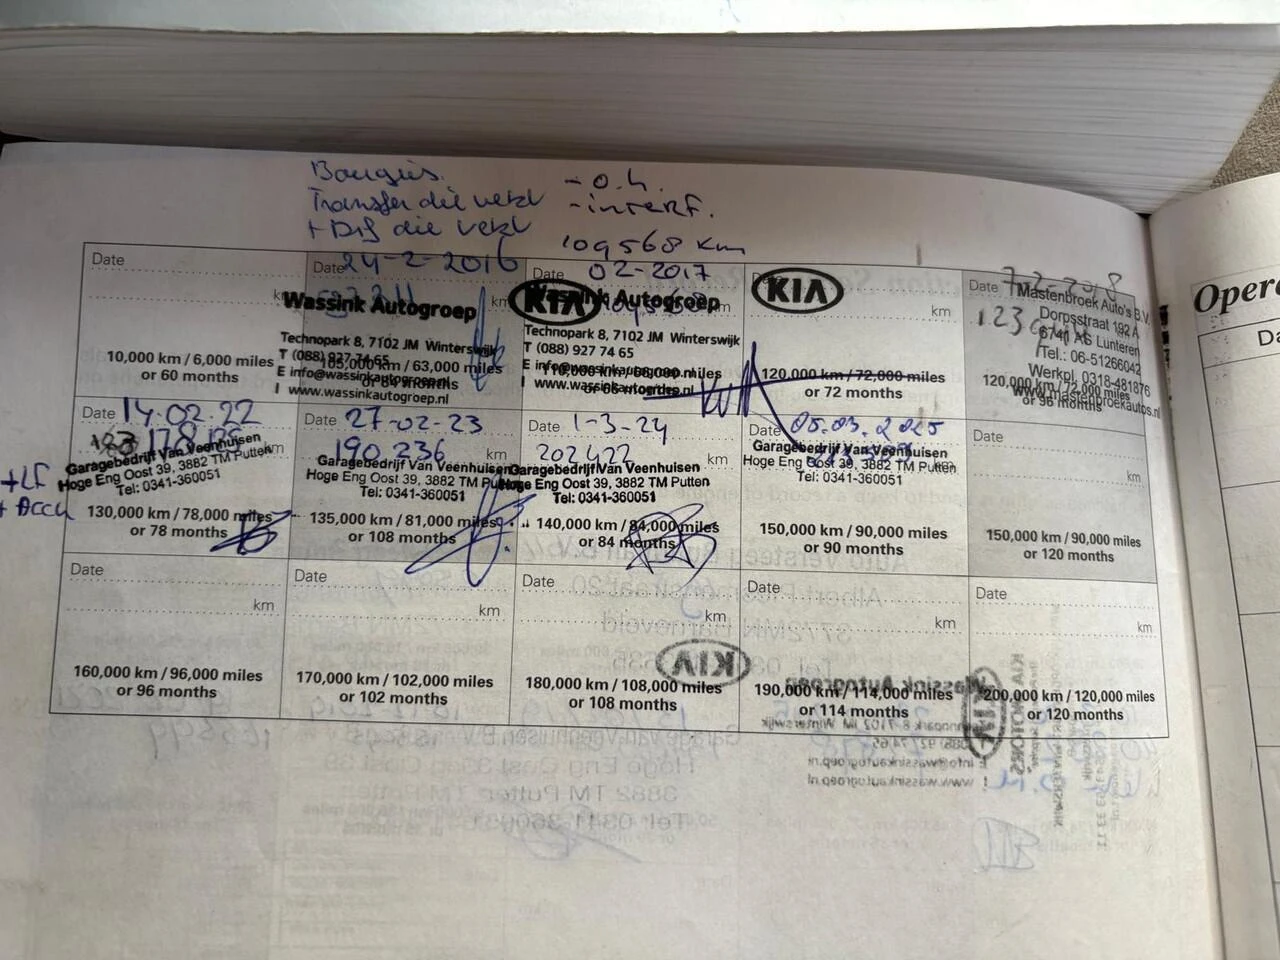 Bougies.
- o.h.
Transfer olie verv
- interf.
+ Dif olie verv
109568 km
Date
Date 24-2-2016
km
Wassink Autogroep
Technopark 8, 7102 JM Winterswijk
T (088) 927 74 65
E info@wassinkautogroep.nl
I www.wassinkautogroep.nl
10,000 km / 6,000 miles
or 60 months
105,000 km / 63,000 miles
Date 02-2017
KIA
Wassink Autogroep
Technopark 8, 7102 JM Winterswijk
T (088) 927 74 65
E info@wassinkautogroep.nl
I www.wassinkautogroep.nl
KIA
km
120,000 km / 72,000 miles
or 72 months
Date 7-2-2018
Mastenbroek Auto's B.V.
Dorpsstraat 192 A
6741 AS Lunteren
Tel.: 06-51266042
Werkpl. 0318-481876
www.mastenbroekautos.nl
120,000 km / 72,000 miles
or 96 months
Date 14-02-22
km
Garagebedrijf Van Veenhuisen
Hoge Eng Oost 39, 3882 TM Putten
Tel: 0341-360051
+LF
+ Accu
130,000 km / 78,000 miles
or 78 months
Date 27-02-23
190 236 km
Garagebedrijf Van Veenhuisen
Hoge Eng Oost 39, 3882 TM Putten
Tel: 0341-360051
135,000 km / 81,000 miles
or 108 months
Date 1-3-24
202422 km
Garagebedrijf Van Veenhuisen
Hoge Eng Oost 39, 3882 TM Putten
Tel: 0341-360051
140,000 km / 84,000 miles
or 84 months
Date 05.03.2025
Garagebedrijf Van Veenhuisen
Hoge Eng Oost 39, 3882 TM Putten
Tel: 0341-360051
150,000 km / 90,000 miles
or 90 months
Date
km
150,000 km / 90,000 miles
or 120 months
Date
km
160,000 km / 96,000 miles
or 96 months
Date
km
170,000 km / 102,000 miles
or 102 months
Date
km
180,000 km / 108,000 miles
or 108 months
Date
km
190,000 km / 114,000 miles
or 114 months
Date
km
200,000 km / 120,000 miles
or 120 months